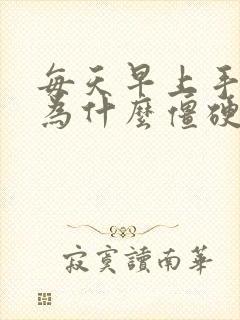 每天早上手
為什麼僵硬
寂寞讀南華